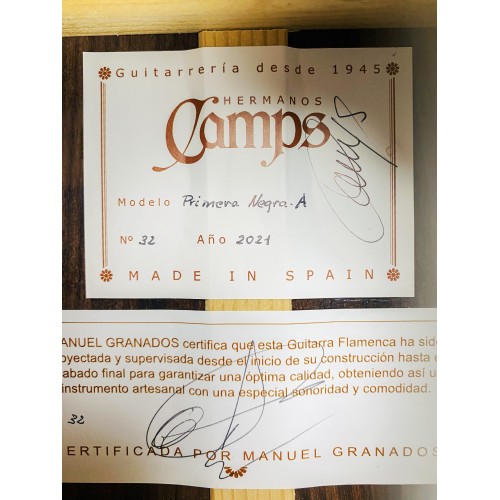 Guitarrería desde 1945
HERMANOS
Camps
Camps
Modelo Primera Negra-A
Nº 32 Año 2021
MADE IN SPAIN
ANUEL GRANADOS certifica que esta Guitarra Flamenca ha sid
oyectada y supervisada desde el inicio de su construcción hasta e
abado final para garantizar una óptima calidad, obteniendo así u
instrumento artesanal con una especial sonoridad y comodidad.
32
ERTIFICADA POR MANUEL GRANADOS